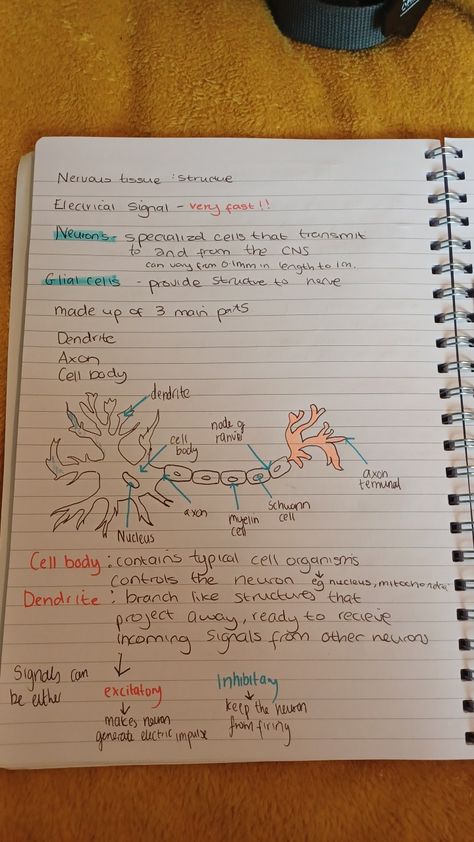 Nervous tissue : Structure
Electrical Signal - very fast!!
Neurons - specialized cells that transmit
to and from the CNS
can vary from 0.1mm in length to 1m.
Glial cells - provide structure to nerve
made up of 3 main parts
Dendrite
Axon
Cell body
dendrite
cell body
node of ranvier
axon terminal
Nucleus
axon
myelin cell
Schwann cell
Cell body : contains typical cell organisms
controls the neuron eg nucleus, mitochondria
Dendrite : branch like structures that
project away, ready to recieve
incoming signals from other neurons
Signals can
be either
excitatory
makes neuron
generate electric impulse
Inhibitary
keep the neuron
from firing